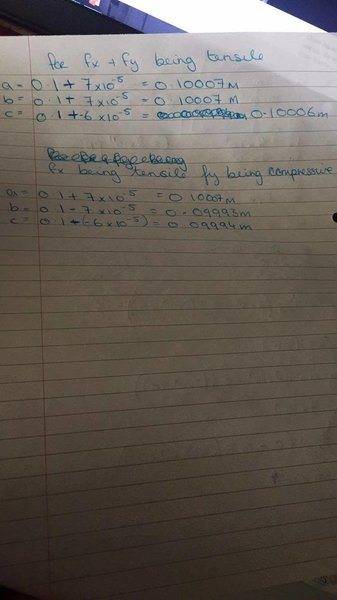 for fx + fy being tensile
a = 0.1 + 7x10⁻⁵ = 0.10007m
b = 0.1 + 7x10⁻⁵ = 0.10007m
c = 0.1 + -6 x10⁻⁵ = 0.10006m
fx being tensile fy being compressive
a = 0.1 + 7x10⁻⁵ = 0.10007m
b = 0.1 - 7x10⁻⁵ = 0.09993m
c = 0.1 + (-6 x10⁻⁵) = 0.09994m